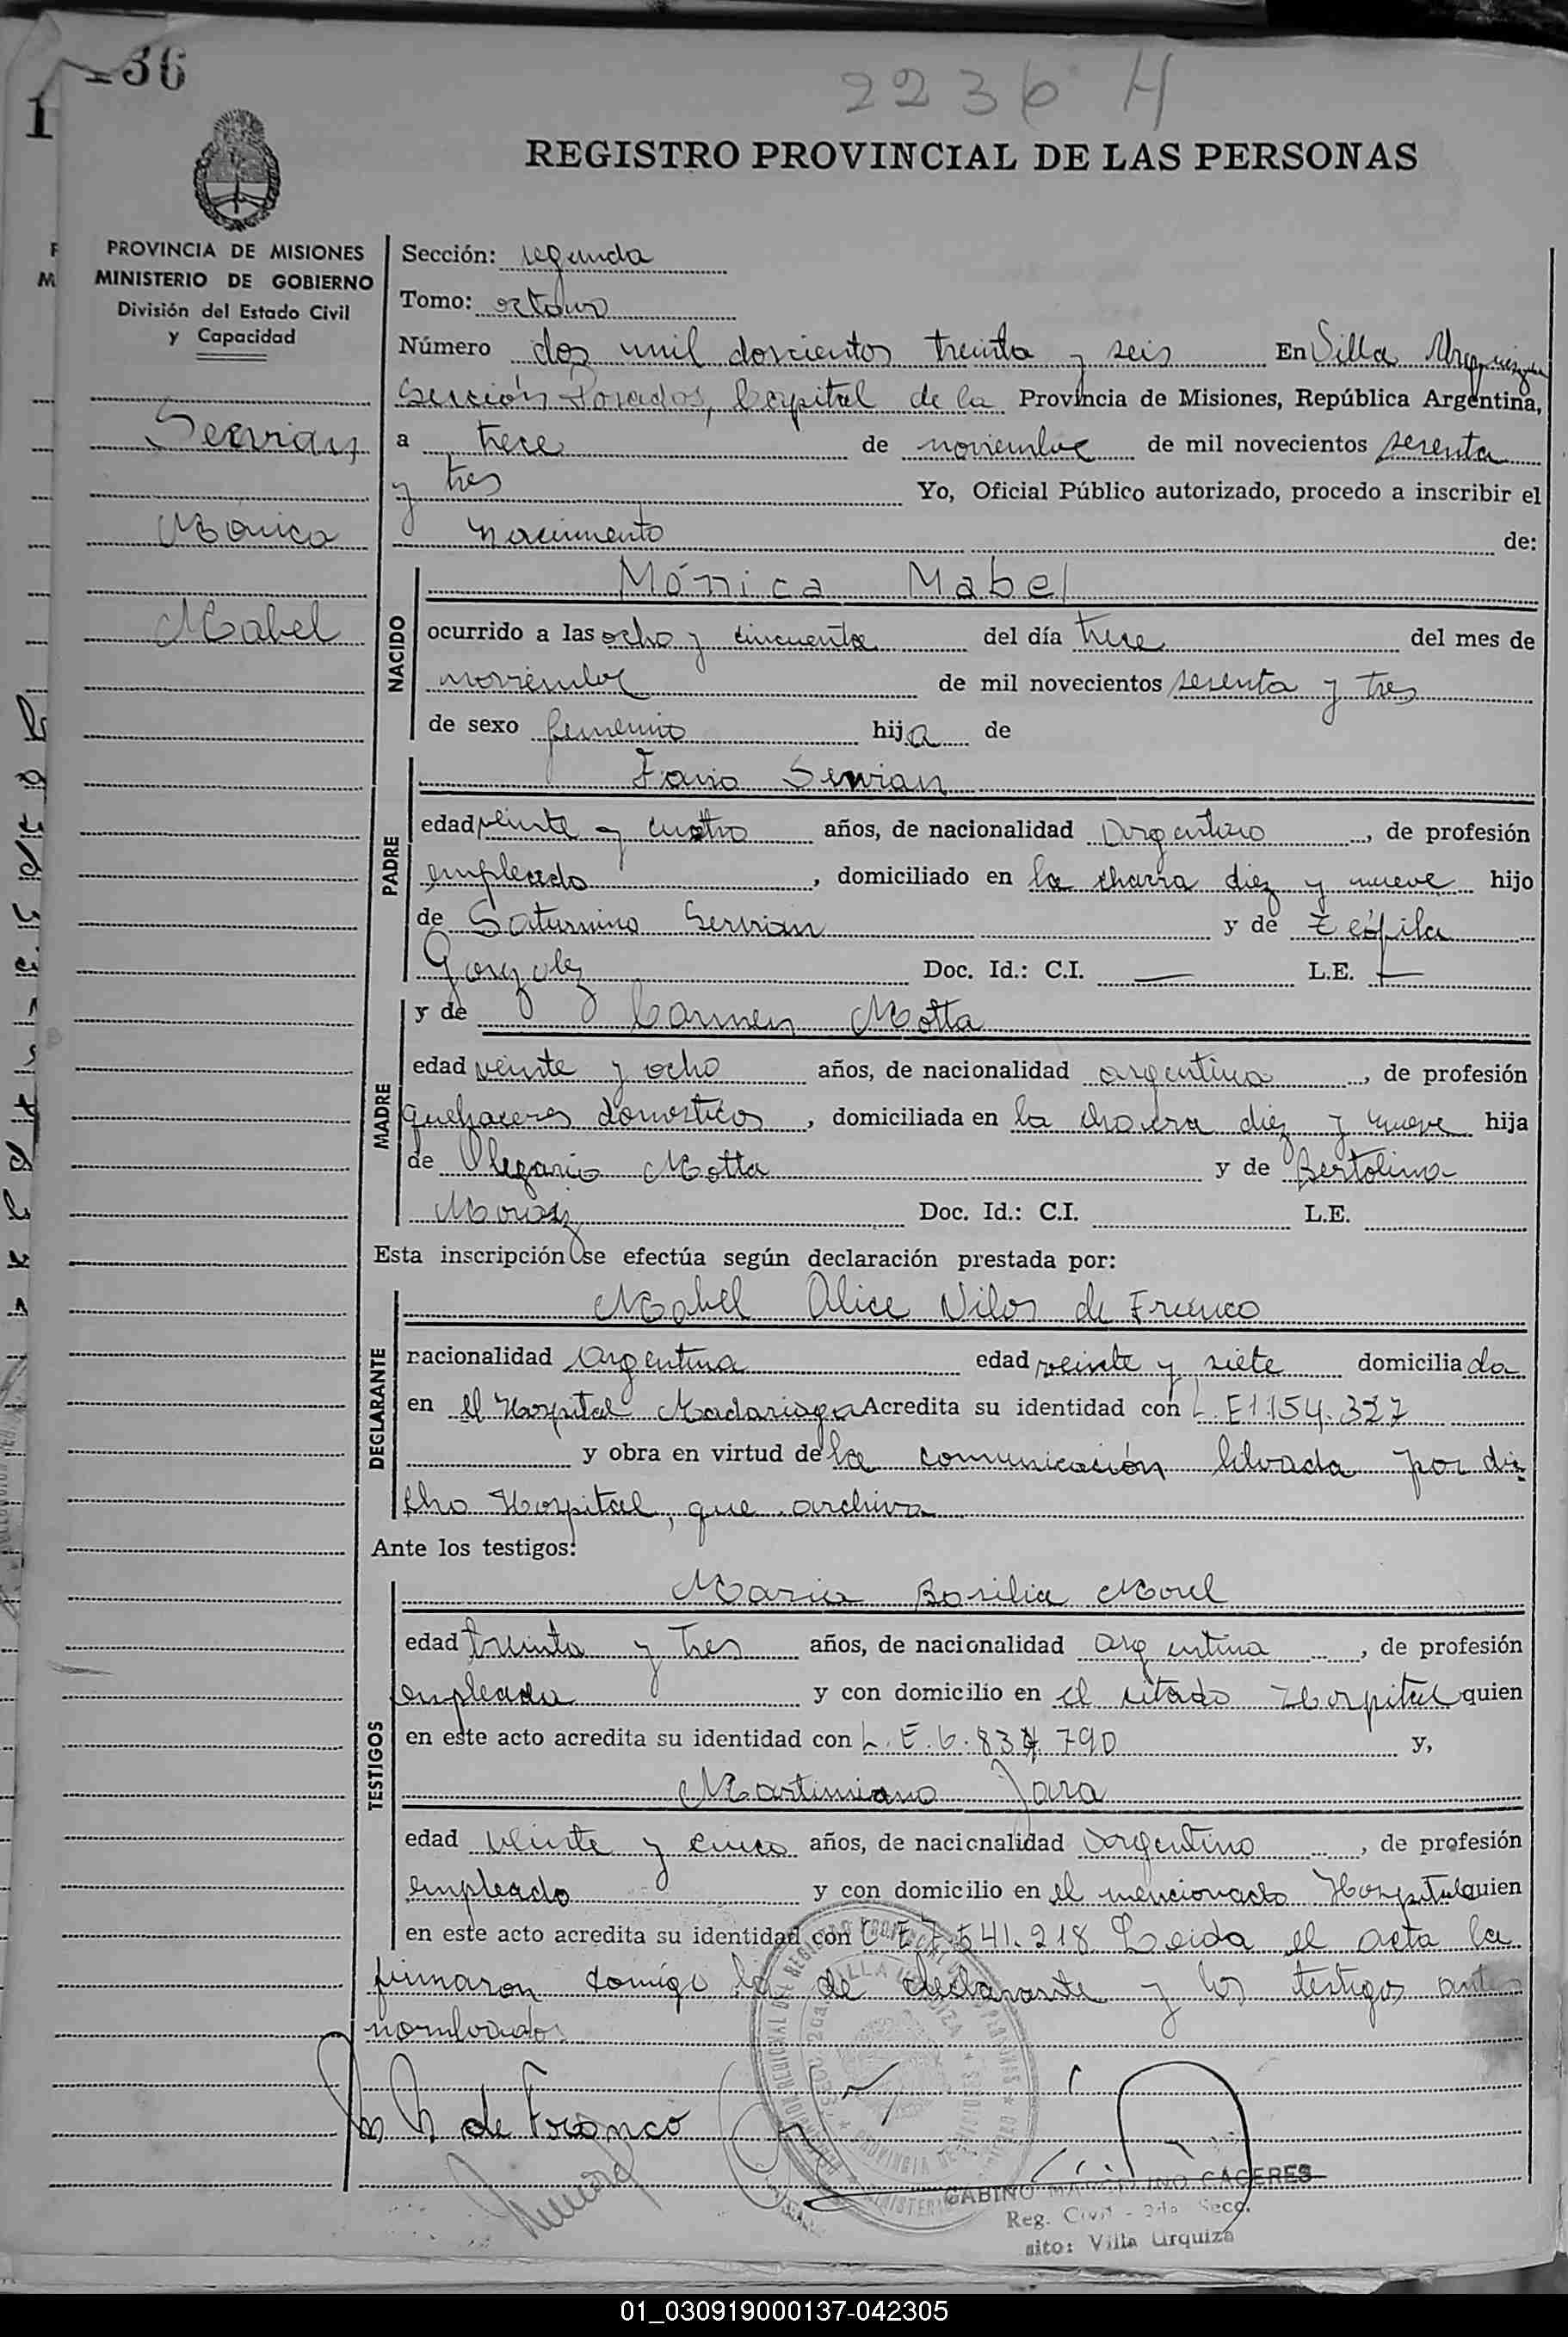 36
2236 H
1
REGISTRO PROVINCIAL DE LAS PERSONAS
PROVINCIA DE MISIONES
MINISTERIO DE GOBIERNO
División del Estado Civil
y Capacidad
Servian
Mónica
Mabel
Sección: segunda
Tomo: octavo
Número dos mil doscientos treinta y seis En Villa Urquiza
Sección Posadas, Capital de la Provincia de Misiones, República Argentina,
a trece de noviembre de mil novecientos sesenta
y tres Yo, Oficial Público autorizado, procedo a inscribir el
nacimiento de:
NACIDO
Mónica Mabel
ocurrido a las ocho y cincuenta del día trece del mes de
noviembre de mil novecientos sesenta y tres
de sexo femenino hija de
PADRE
Servian
edad veinte y cuatro años, de nacionalidad argentino, de profesión
empleado, domiciliado en la chacra diez y nueve hijo
de Saturnino Servian y de
Gonzalez Doc. Id.: C.I. — L.E. —
MADRE
y de Carmen Motta
edad veinte y ocho años, de nacionalidad argentina, de profesión
quehaceres domesticos, domiciliada en la chacra diez y nueve hija
de Olegario Motta y de Bertolina
Doc. Id.: C.I. L.E.
Esta inscripción se efectúa según declaración prestada por:
DECLARANTE
Mabel Alice de Franco
nacionalidad argentina edad veinte y siete domiciliada
en el Hospital Madariaga Acredita su identidad con L.E 1.154.327
y obra en virtud de la comunicación librada por di-
cho Hospital, que archiva
Ante los testigos:
TESTIGOS
Maria Basilia Morel
edad treinta y tres años, de nacionalidad argentina, de profesión
empleada y con domicilio en el citado Hospital quien
en este acto acredita su identidad con L.E.6.837.790 y,
Martimiano Jara
edad veinte y cinco años, de nacionalidad argentino, de profesión
empleado y con domicilio en el mencionado Hospital quien
en este acto acredita su identidad con L.E 7.541.218 Leida el acta la
firmaron comigo la de declarante y los testigos antes
nombrados
de Franco
GABINO MARCELINO CACERES
Reg. Civil - 2da Secc.
sito: Villa Urquiza
01_030919000137-042305